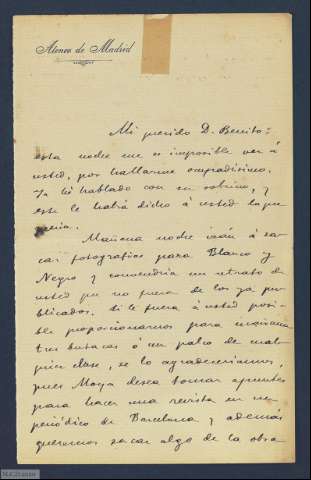 Ateneo de Madrid
Mi querido D. Benito:
esta noche me es imposible ver á
usted, por hallarme ocupadísimo.
Ya hé hablado con su sobrino, y
este le habrá dicho á usted lo que
Mañana noche irán á sa-
car fotografías para Blanco y
Negro y convendría un retrato de
usted que no fuera de los ya pu-
blicados. Si le fuera á usted posi-
ble proporcionarnos para mañana
tres butacas ó un palco de cual-
quier clase, se lo agradeceríamos,
pues Moya desea tomar apuntes
para hacer una revista en un
periódico de Barcelona y además
queremos sacar algo de la obra